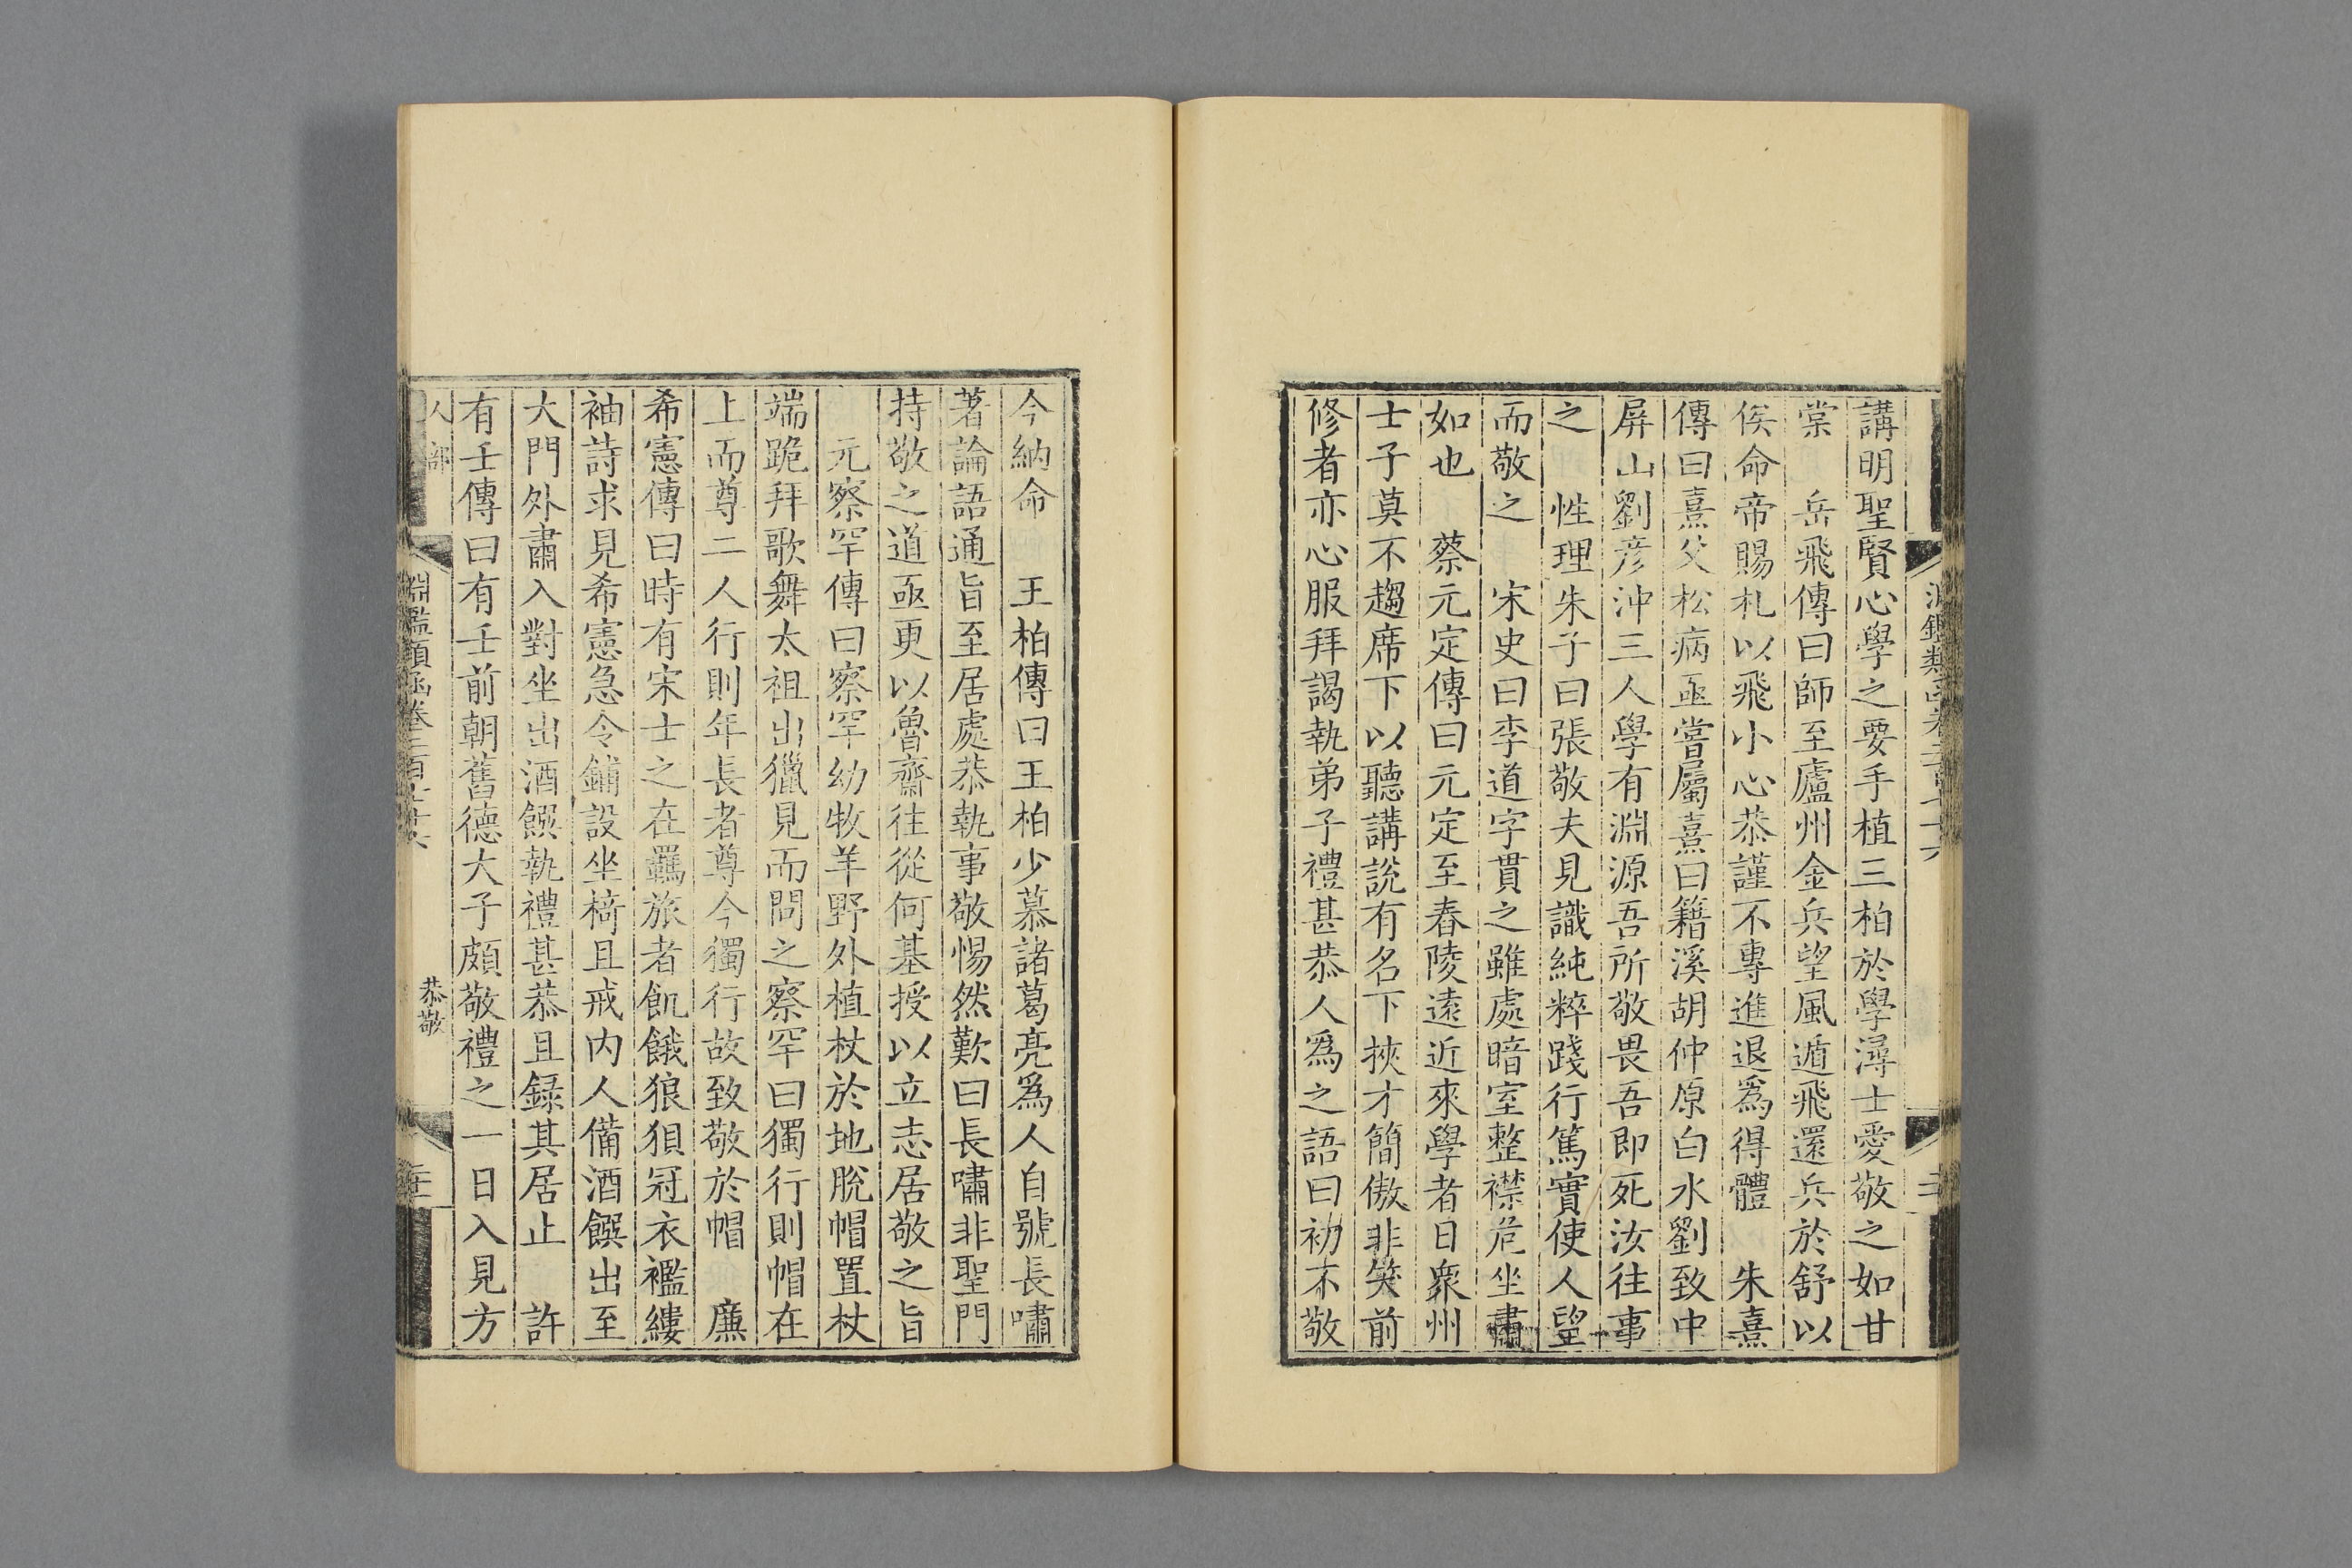 講明聖賢心學之要手植三柏於學潯士愛敬之如甘
棠　岳飛傳曰師至廬州金兵望風遁飛還兵於舒以
俟命帝賜札以飛小心恭謹不專進退爲得體　朱熹
傳曰熹父松病亟嘗屬熹曰籍溪胡仲原白水劉致中
屏山劉彦沖三人學有淵源吾所敬畏吾即死汝往事
之　性理朱子曰張敬夫見識純粹踐行篤實使人望
而敬之　宋史曰李道字貫之雖處暗室整襟危坐肅
如也　蔡元定傳曰元定至舂陵遠近來學者日衆州
士子莫不趨席下以聽講說有名下挾才簡傲非笑前
修者亦心服拜謁執弟子禮甚恭人爲之語曰初不敬
今納命　王柏傳曰王柏少慕諸葛亮爲人自號長嘯
著論語通旨至居處恭執事敬惕然歎曰長嘯非聖門
持敬之道亟更以魯齋往從何基授以立志居敬之旨
元察罕傳曰察罕幼牧羊野外植杖於地脫帽置杖
端跪拜歌舞太祖出獵見而問之察罕曰獨行則帽在
上而尊二人行則年長者尊今獨行故致敬於帽　廉
希憲傳曰時有宋士之在羈旅者飢餓狼狽冠衣襤縷
袖詩求見希憲急令鋪設坐椅且戒内人備酒饌出至
大門外肅入對坐出酒饌執禮甚恭且録其居止　許
有壬傳曰有壬前朝舊德大子頗敬禮之一日入見方
人部
淵鑑類函卷二百七十六
恭敬